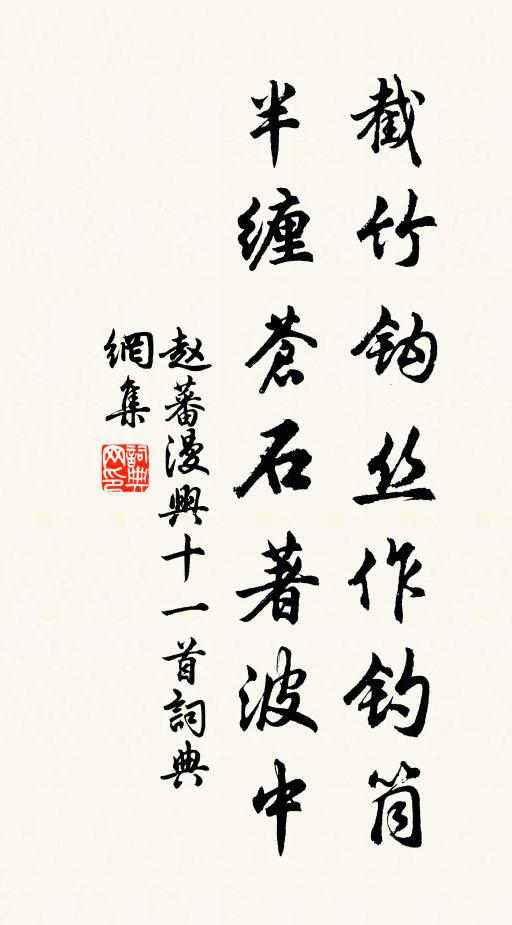 截竹钩丝作钓筒
半缠苍石著波中
赵蕃漫興十一首詞典
網集
詞典
网印